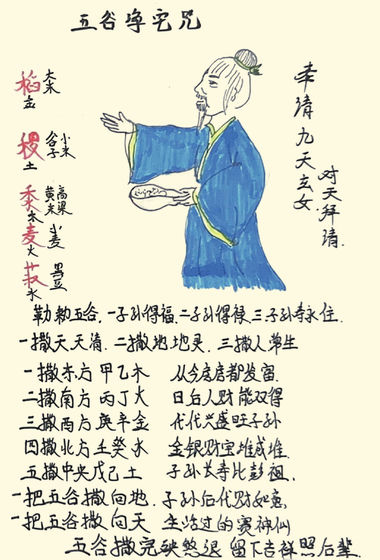 五谷净宅咒
稻 大米
金
稷 谷子 小米
土
黍 黄米 高粱
木
麦 小麦
火
菽 黑豆
水
奉请九天玄女
对天拜请.
勅勅五谷.一子孙得福.二子孙得禄.三子孙寿永住.
一撒天天清.二撒地地灵.三撒人常生
一撒东方甲乙木 从今店店都发富.
二撒南方丙丁火 日白人财能双得
三撒西方庚辛金 代代兴盛旺子孙
四撒北方壬癸水 金银财宝堆成堆.
五撒中央戊己土 子孙长寿比彭祖.
一把五谷撒向地.子孙后代财如意.
一把五谷撒向天 生活过的赛神仙
五谷撒完殃煞退 留下吉祥照后辈.